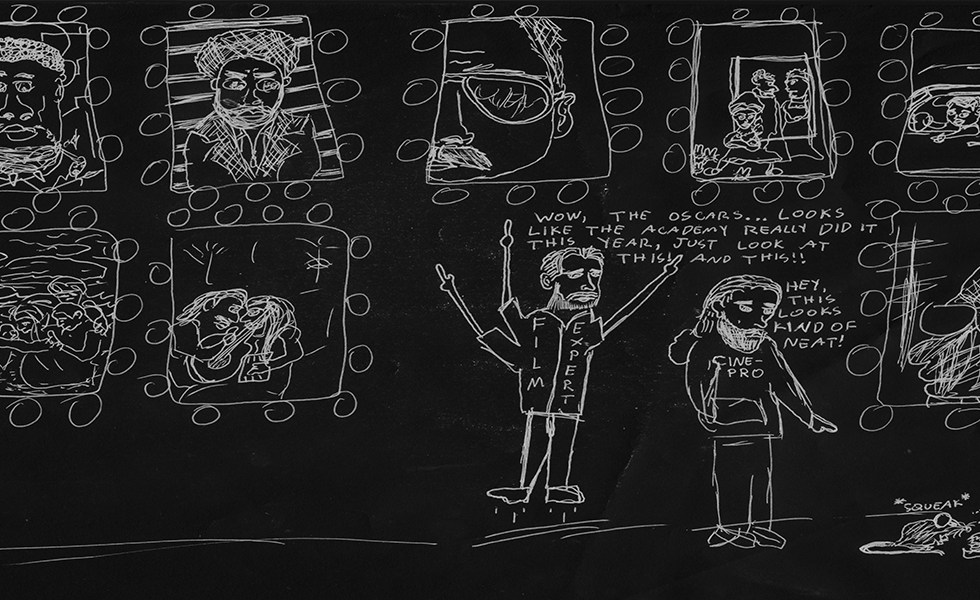 WOW, THE OSCARS... LOOKS
LIKE THE ACADEMY REALLY DID IT
THIS YEAR, JUST LOOK AT
THIS! AND THIS!!
HEY,
THIS
LOOKS
KIND OF
NEAT!
FILM
EXPERT
CINE-
PRO
*SQUEAK*